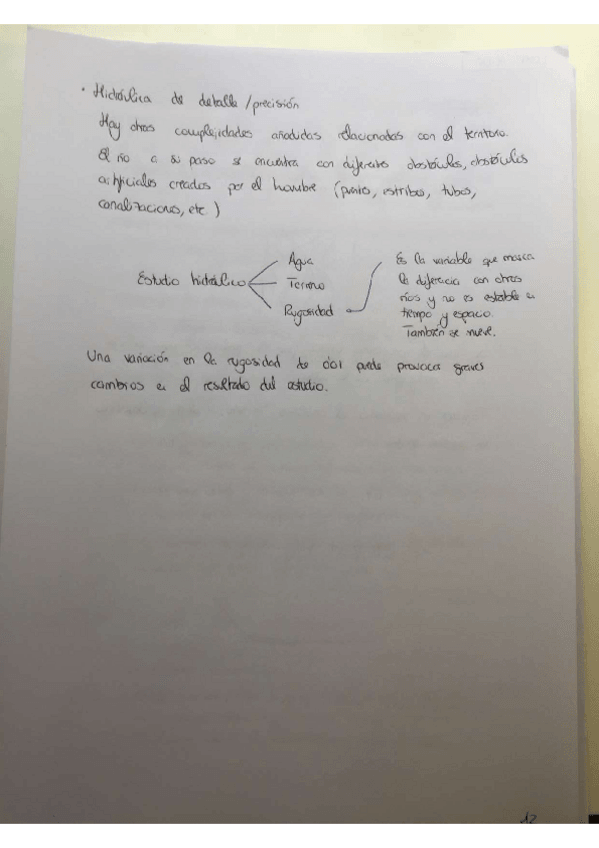 · Hidráulica de detalle / precisión
Hay otras complejidades añadidas relacionadas con el territorio.
El río a su paso se encuentra con diferentes obstáculos, obstáculos
artificiales creados por el hombre (puentes, estribos, tubos,
canalizaciones, etc.)
Estudio hidráulico
Agua
Terreno
Rugosidad
Es la variable que marca
la diferencia con otros
ríos y no es estable en
tiempo y espacio.
También se mueve.
Una variación en la rugosidad de 0'01 puede provocar graves
cambios en el resultado del estudio.
12